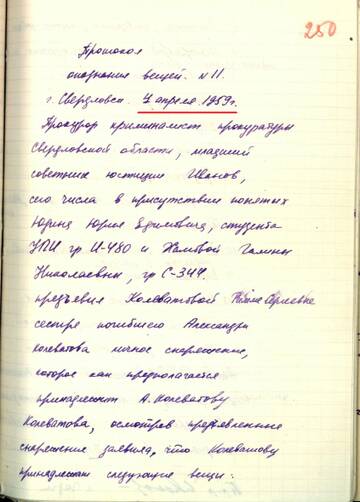 250
Протокол
опознания вещей. №11.
г. Свердловск. 7 апреля 1959г.
Прокурор криминалист прокуратуры
Свердловской области, младший
советник юстиции Иванов,
сего числа в присутствии понятых
Юдина Юрия Ефимовича, студента
УПИ гр И-480 и Хамовой Галины
Николаевны, гр С-344.
предъявил Колеватовой
сестре погибшего Александра
Колеватова личное снаряжение,
которое как предполагается
принадлежит А. Колеватову
Колеватова, осмотрев предъявленное
снаряжение заявила, что Колеватову
принадлежат следующие вещи: